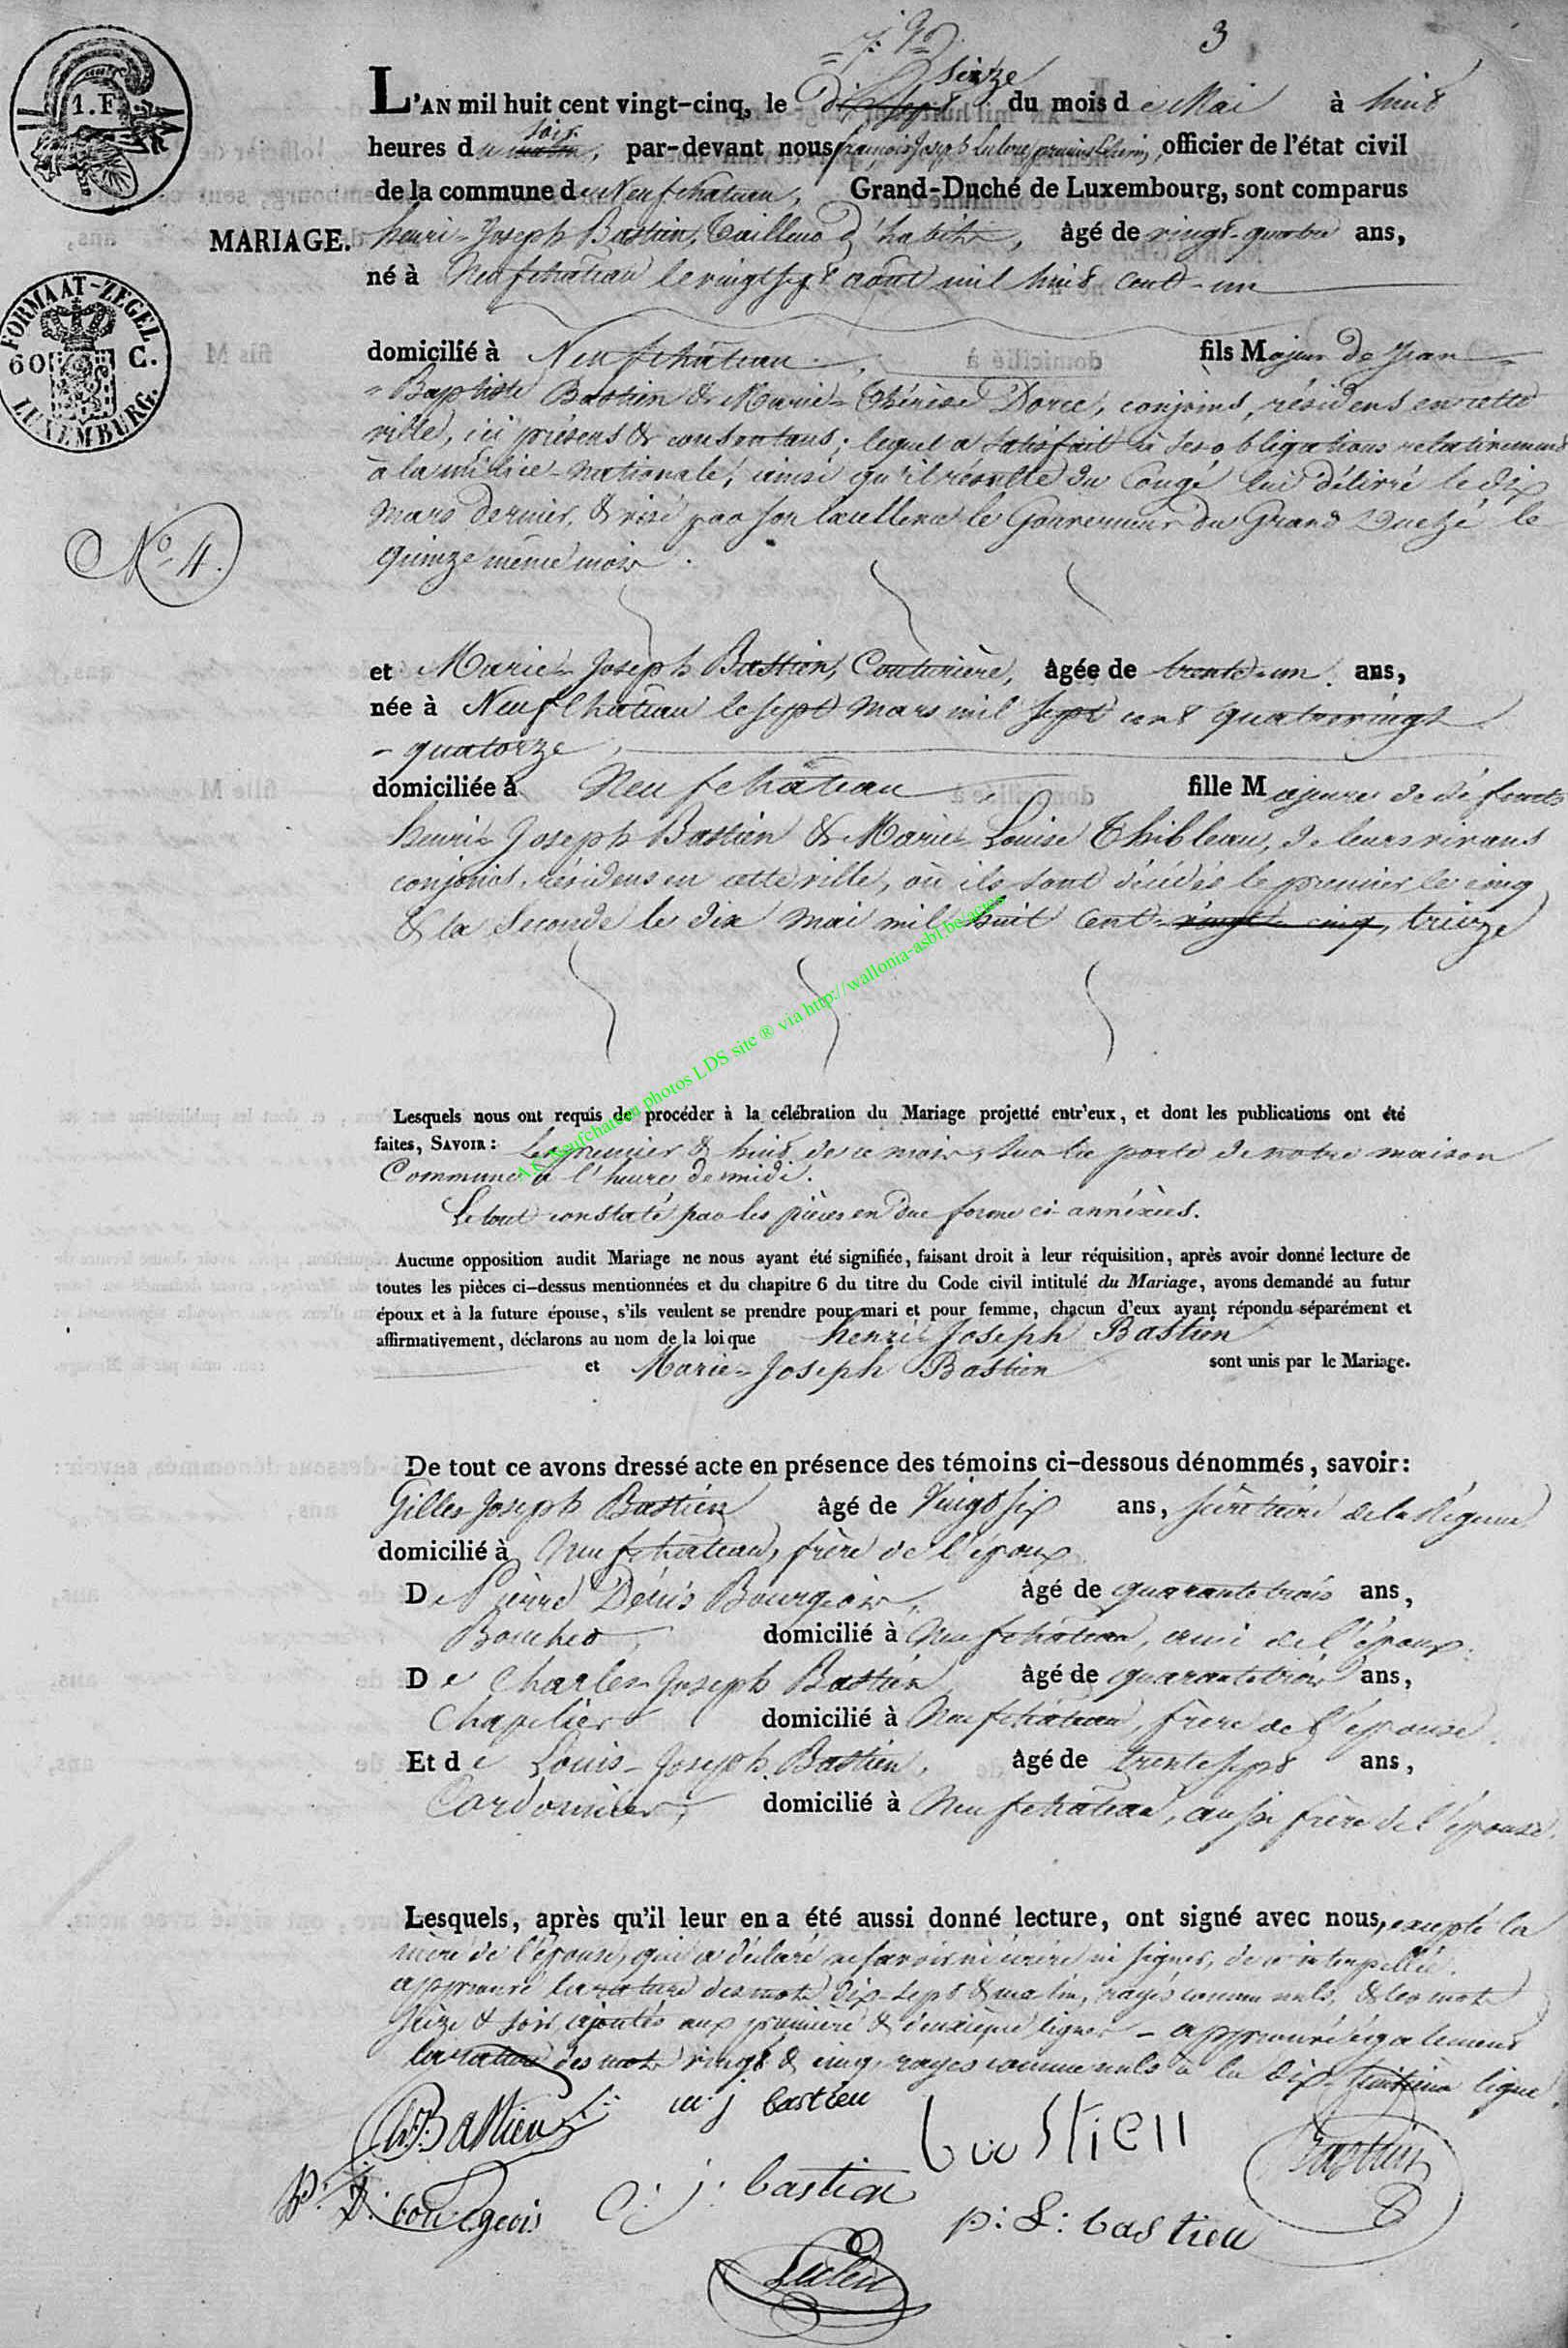 3
1. F.
seize
L'AN mil huit cent vingt-cinq, le dix sept du mois de Mai à huit
soir
heures du matin, par-devant nous françois Joseph, officier de l'état civil
de la commune de Neufchateau, Grand-Duché de Luxembourg, sont comparus
MARIAGE. henri-Joseph Bastien, Tailleur d'habits, âgé de vingt-quatre ans,
né à Neufchateau le vingt sept août mil huit cent-un
FORMAAT-ZEGEL
60 C.
LUXEMBURG.
domicilié à Neufchâteau. fils Majeur de Jean-
-Baptiste Bastien & Marie-Thérèse Dorée, conjoins, résidens en cette
ville, ici présens & consentans; lequel a satisfait à ses obligations relativement
à la milice-nationale, ainsi qu'il résulte du Congé lui délivré le dix
Mars dernier, & visé par son Excellence le Gouverneur du Grand Duché le
quinze même mois.
No. 4.
et Marie-Joseph Bastien, Couturière, âgée de trente-un ans,
née à Neufchâteau le sept Mars mil sept cent quatrevingt
-quatorze,
domiciliée à Neufchâteau fille Majeure de défunts
henri-Joseph Bastien & Marie-Louise Thibleau, de leurs vivans
conjoins, résidens en cette ville, où ils sont décédés le premier le cinq
& la Seconde le dix Mai mil huit cent-vingt-cinq, treize
Lesquels nous ont requis de procéder à la célébration du Mariage projetté entr'eux, et dont les publications ont été
faites, SAVOIR: Les premier & huit de ce mois, sur la porte de notre maison
Commune à l'heure de midi.
Le tout constaté par les pièces en due forme ci-annéxées.
Aucune opposition audit Mariage ne nous ayant été signifiée, faisant droit à leur réquisition, après avoir donné lecture de
toutes les pièces ci-dessus mentionnées et du chapitre 6 du titre du Code civil intitulé du Mariage, avons demandé au futur
époux et à la future épouse, s'ils veulent se prendre pour mari et pour femme, chacun d'eux ayant répondu séparément et
affirmativement, déclarons au nom de la loi que henri-Joseph Bastien
et Marie-Joseph Bastien sont unis par le Mariage.
De tout ce avons dressé acte en présence des témoins ci-dessous dénommés, savoir:
Gilles-Joseph Bastien âgé de Vingt six ans, secrétaire de la Régence
domicilié à Neufchateau, frère de l'époux
De Pierre Dénis Bourgeois, âgé de quarante trois ans,
Boucher, domicilié à Neufchateau, ami de l'époux.
De Charles-Joseph Bastien âgé de quarante trois ans,
Chapelier domicilié à Neufchateau, frère de l'épouse.
Et de Louis-Joseph Bastien, âgé de trente sept ans,
Cordonnier, domicilié à Neufchateau, aussi frère de l'épouse.
Lesquels, après qu'il leur en a été aussi donné lecture, ont signé avec nous, excepté la
mère de l'époux, qui a déclaré ne savoir ni écrire ni signer, de ce interpellée.
approuvé la rature des mots dix-sept & matin, rayés comme nuls, & les mots
seize & soir ajoutés aux première & deuxième lignes - approuvé également
la rature des mots vingt & cinq, rayés comme nuls à la dix-huitième ligne.
h. J. Bastien m: j bastien bastien Bastien
P: D: bourgeois C: j: bastien p: L: bastien
A.C. Neufchateau photos LDS site ® via http://wallonia-asbl.be/actes